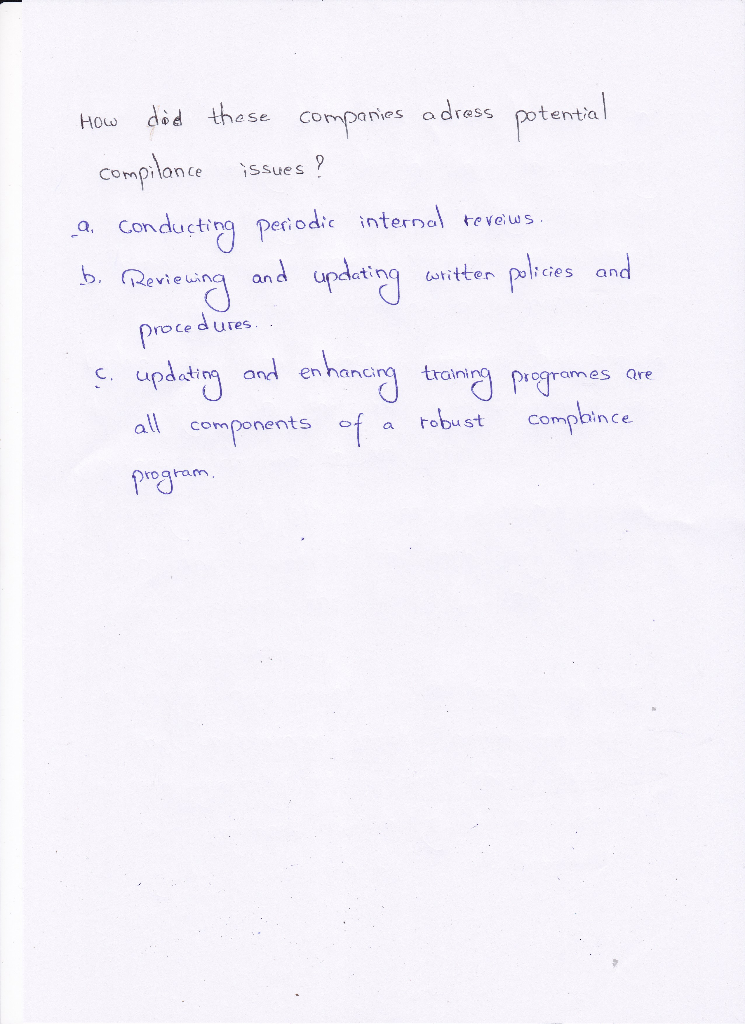 How did these companies adress potential
compilance issues?
a. conducting periodic internal reveiws.
b. Reviewing and updating written policies and
procedures..
c. updating and enhancing training programes are
all components of a robust complaince
program.